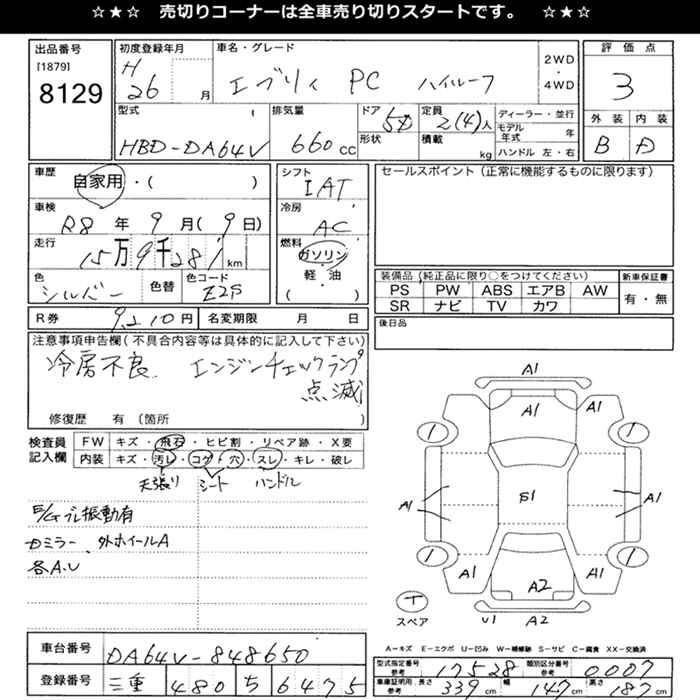 ☆★☆ 売切りコーナーは全車売り切りスタートです。 ☆★☆
出品番号
[1879]
8129
初度登録年月
H
26 月
車名・グレード
エブリィ PC ハイルーフ
2WD
・
4WD
評価点
3
外装 内装
B D
型式
HBD-DA64V
排気量
660 cc
ドア 5D
形状
定員 2(4)人
積載 kg
ディーラー・並行
モデル年式 年
ハンドル 左・右
車歴
自家用・( )
車検
R8 年 9 月(9日)
走行
15万9千281 km
色
シルバー
色替
色コード
Z2S
シフト
IAT
冷房
AC
燃料
ガソリン
軽・油
( )
セールスポイント(正常に機能するものに限ります)
装備品(純正品に限り○をつけてください)
PS PW ABS エアB AW
SR ナビ TV カワ
新車保証書
有・無
後日品
R券 9,210円
名変期限 月 日
注意事項申告欄(不具合内容等は具体的に記入して下さい)
冷房不良 エンジンチェックランプ
点滅
修復歴 有(箇所 )
検査員
記入欄
FW キズ・飛石・ヒビ割・リペア跡・X要
内装 キズ・汚レ・コゲ・穴・スレ・キレ・破レ
天張り シート ハンドル
E/Gブレ振動有
Dミラー、外ホイールA
各A.U
A1
A1 A1
1 1
A1 B1 A1
1 1
A1 A2 A1
T
スペア
U1 A2
A-キズ E-エクボ U-凹み W-補修跡 S-サビ C-腐食 XX-交換済
車台番号 DA64V-848650
登録番号 三重 480 う 6475
型式指定番号 参考 17528
類別区分番号 参考 0007
車庫証明用・長さ 参考 339 cm 幅 147 cm 高さ 187 cm